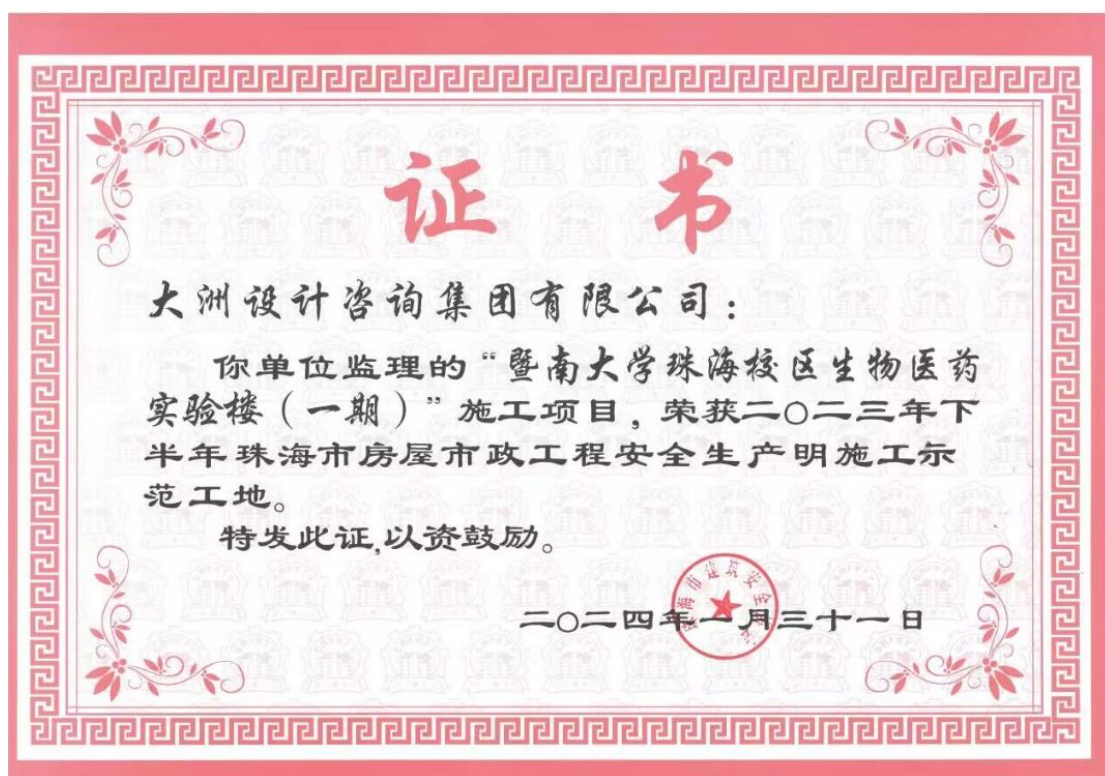 证书
大洲设计咨询集团有限公司：
你单位监理的“暨南大学珠海校区生物医药
实验楼（一期）”施工项目，荣获二〇二三年下
半年珠海市房屋市政工程安全生产明施工示
范工地。
特发此证,以资鼓励。
海市建筑安全
二〇二四年一月三十一日